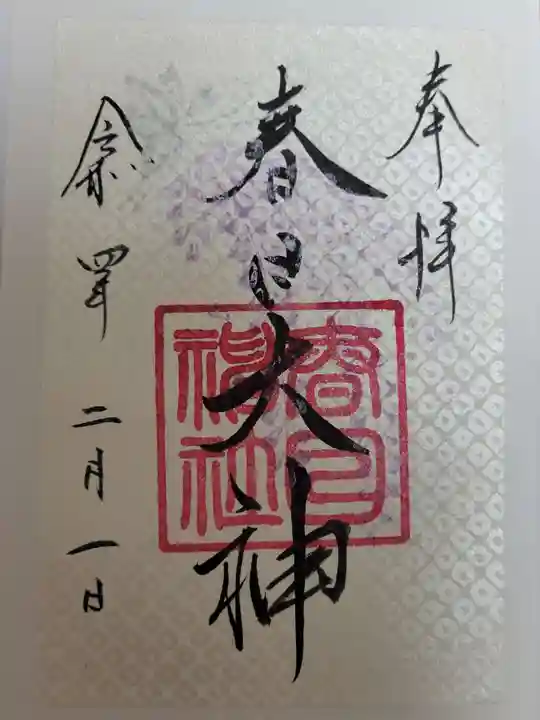 奉拝
春日大神
春日神社
令和四年二月一日